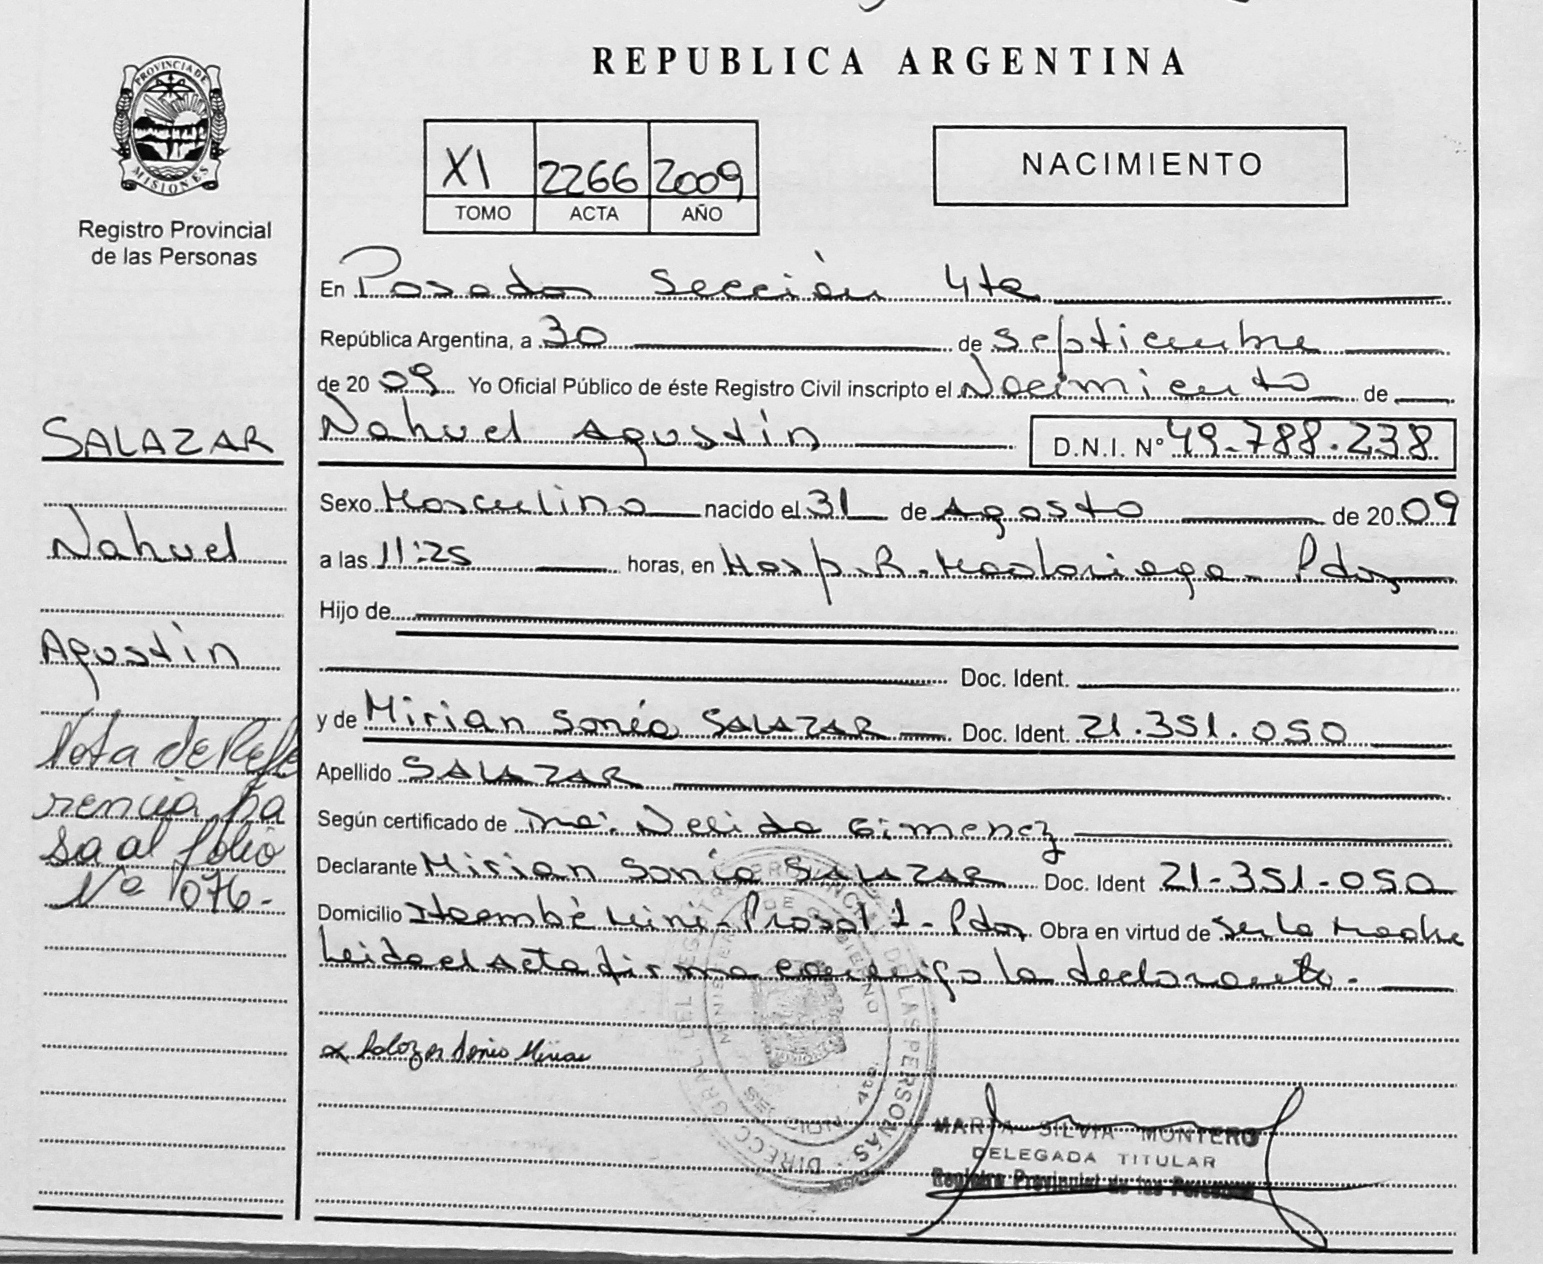 REPUBLICA ARGENTINA
PROVINCIA DE
MISIONES
Registro Provincial
de las Personas
XI 2266 2009
TOMO ACTA AÑO
NACIMIENTO
En Posadas Sección 4ta
República Argentina, a 30 de septiembre
de 2009 Yo Oficial Público de éste Registro Civil inscripto el Nacimiento de
Nahuel Agustín D.N.I. Nº 49.788.238
Sexo Masculino nacido el 31 de Agosto de 2009
a las 11:25 horas, en Hosp. R. Madariaga - Pdas
Hijo de
Doc. Ident.
y de Mirian Sonia SALAZAR Doc. Ident. 21.351.050
Apellido SALAZAR
Según certificado de Dra. Nelida Gimenez
Declarante Mirian Sonia SALAZAR Doc. Ident 21-351-050
Domicilio Itaembé Miní - Prosol 1 - Pdas Obra en virtud de ser la Madre
Leida el acta firma conmigo la declarante.
x Salazar Sonia Mirian
SALAZAR
Nahuel
Agustín
Nota de Refe
rencia pa
sa al folio
Nº 1076-
DIRECC GRAL DEL REGISTRO PROVINCIAL DE LAS PERSONAS
MINISTERIO DE GOBIERNO
SECCION 4ta.
MARTA SILVIA MONTERO
DELEGADA TITULAR
Registro Provincial de las Personas